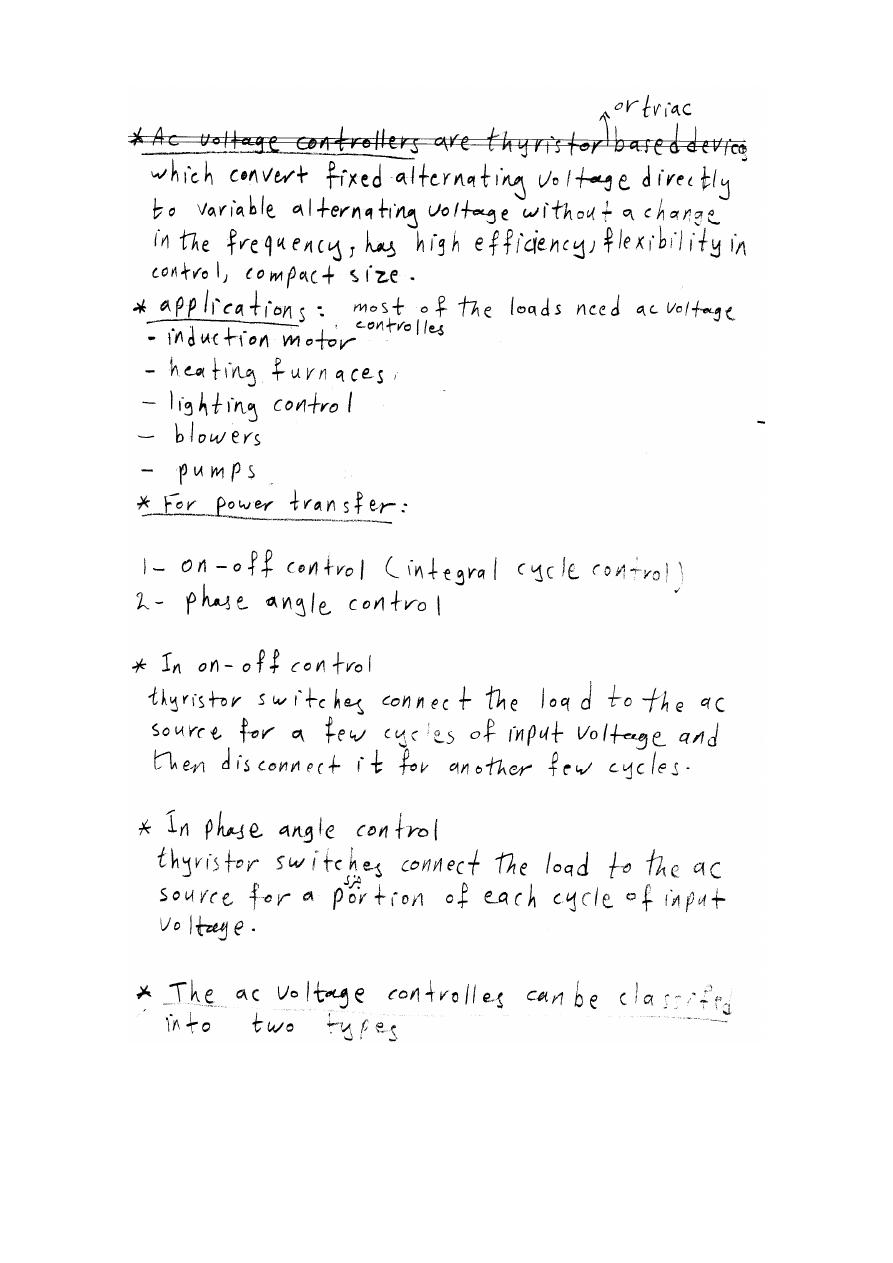 or triac
* Ac voltage controllers are thyristor based device
which convert fixed alternating voltage directly
to variable alternating voltage without a change
in the frequency, has high efficiency, flexibility in
control, compact size.
* applications: most of the loads need ac voltage
controlles
- induction motor
- heating furnaces
- lighting control
- blowers
- pumps
* For power transfer:
1- on-off control (integral cycle control)
2- phase angle control
* In on-off control
thyristor switches connect the load to the ac
source for a few cycles of input voltage and
then disconnect it for another few cycles.
* In phase angle control
thyristor switches connect the load to the ac
جزء
source for a portion of each cycle of input
voltage.
* The ac voltage controlles can be classified
into two types